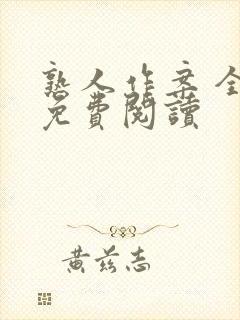 熟人作案全
免費閱讀
黃茲志